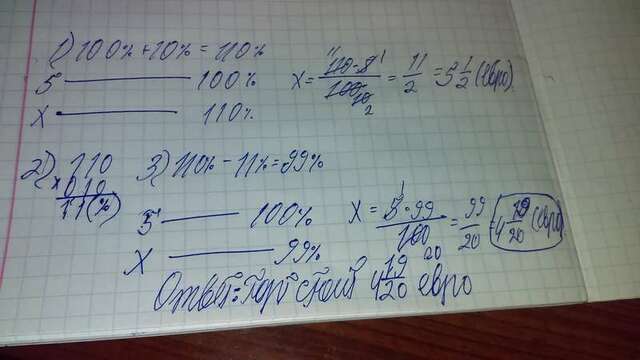 1) 100% + 10% = 110%
5 — 100%
x — 110%
x = 110·5/100 = 11/2 = 5 1/2 (евро)
2) 110
× 0,10
11 (%)
3) 110% - 11% = 99%
5 — 100%
x — 99%
x = 5·99/100 = 99/20 = 4 19/20 (евро)
Ответ: Торт стоит 4 19/20 евро